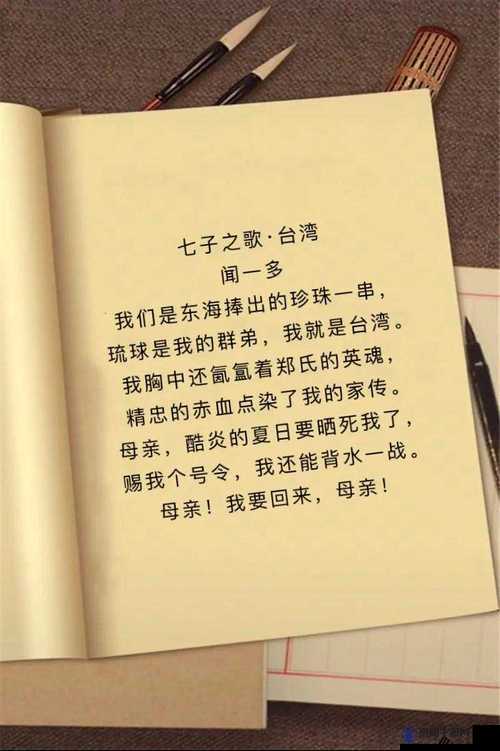 七子之歌·台湾
闻一多
我们是东海捧出的珍珠一串，
琉球是我的群弟，我就是台湾。
我胸中还氤氲着郑氏的英魂，
精忠的赤血点染了我的家传。
母亲，酷炎的夏日要晒死我了，
赐我个号令，我还能背水一战。
母亲！我要回来，母亲！